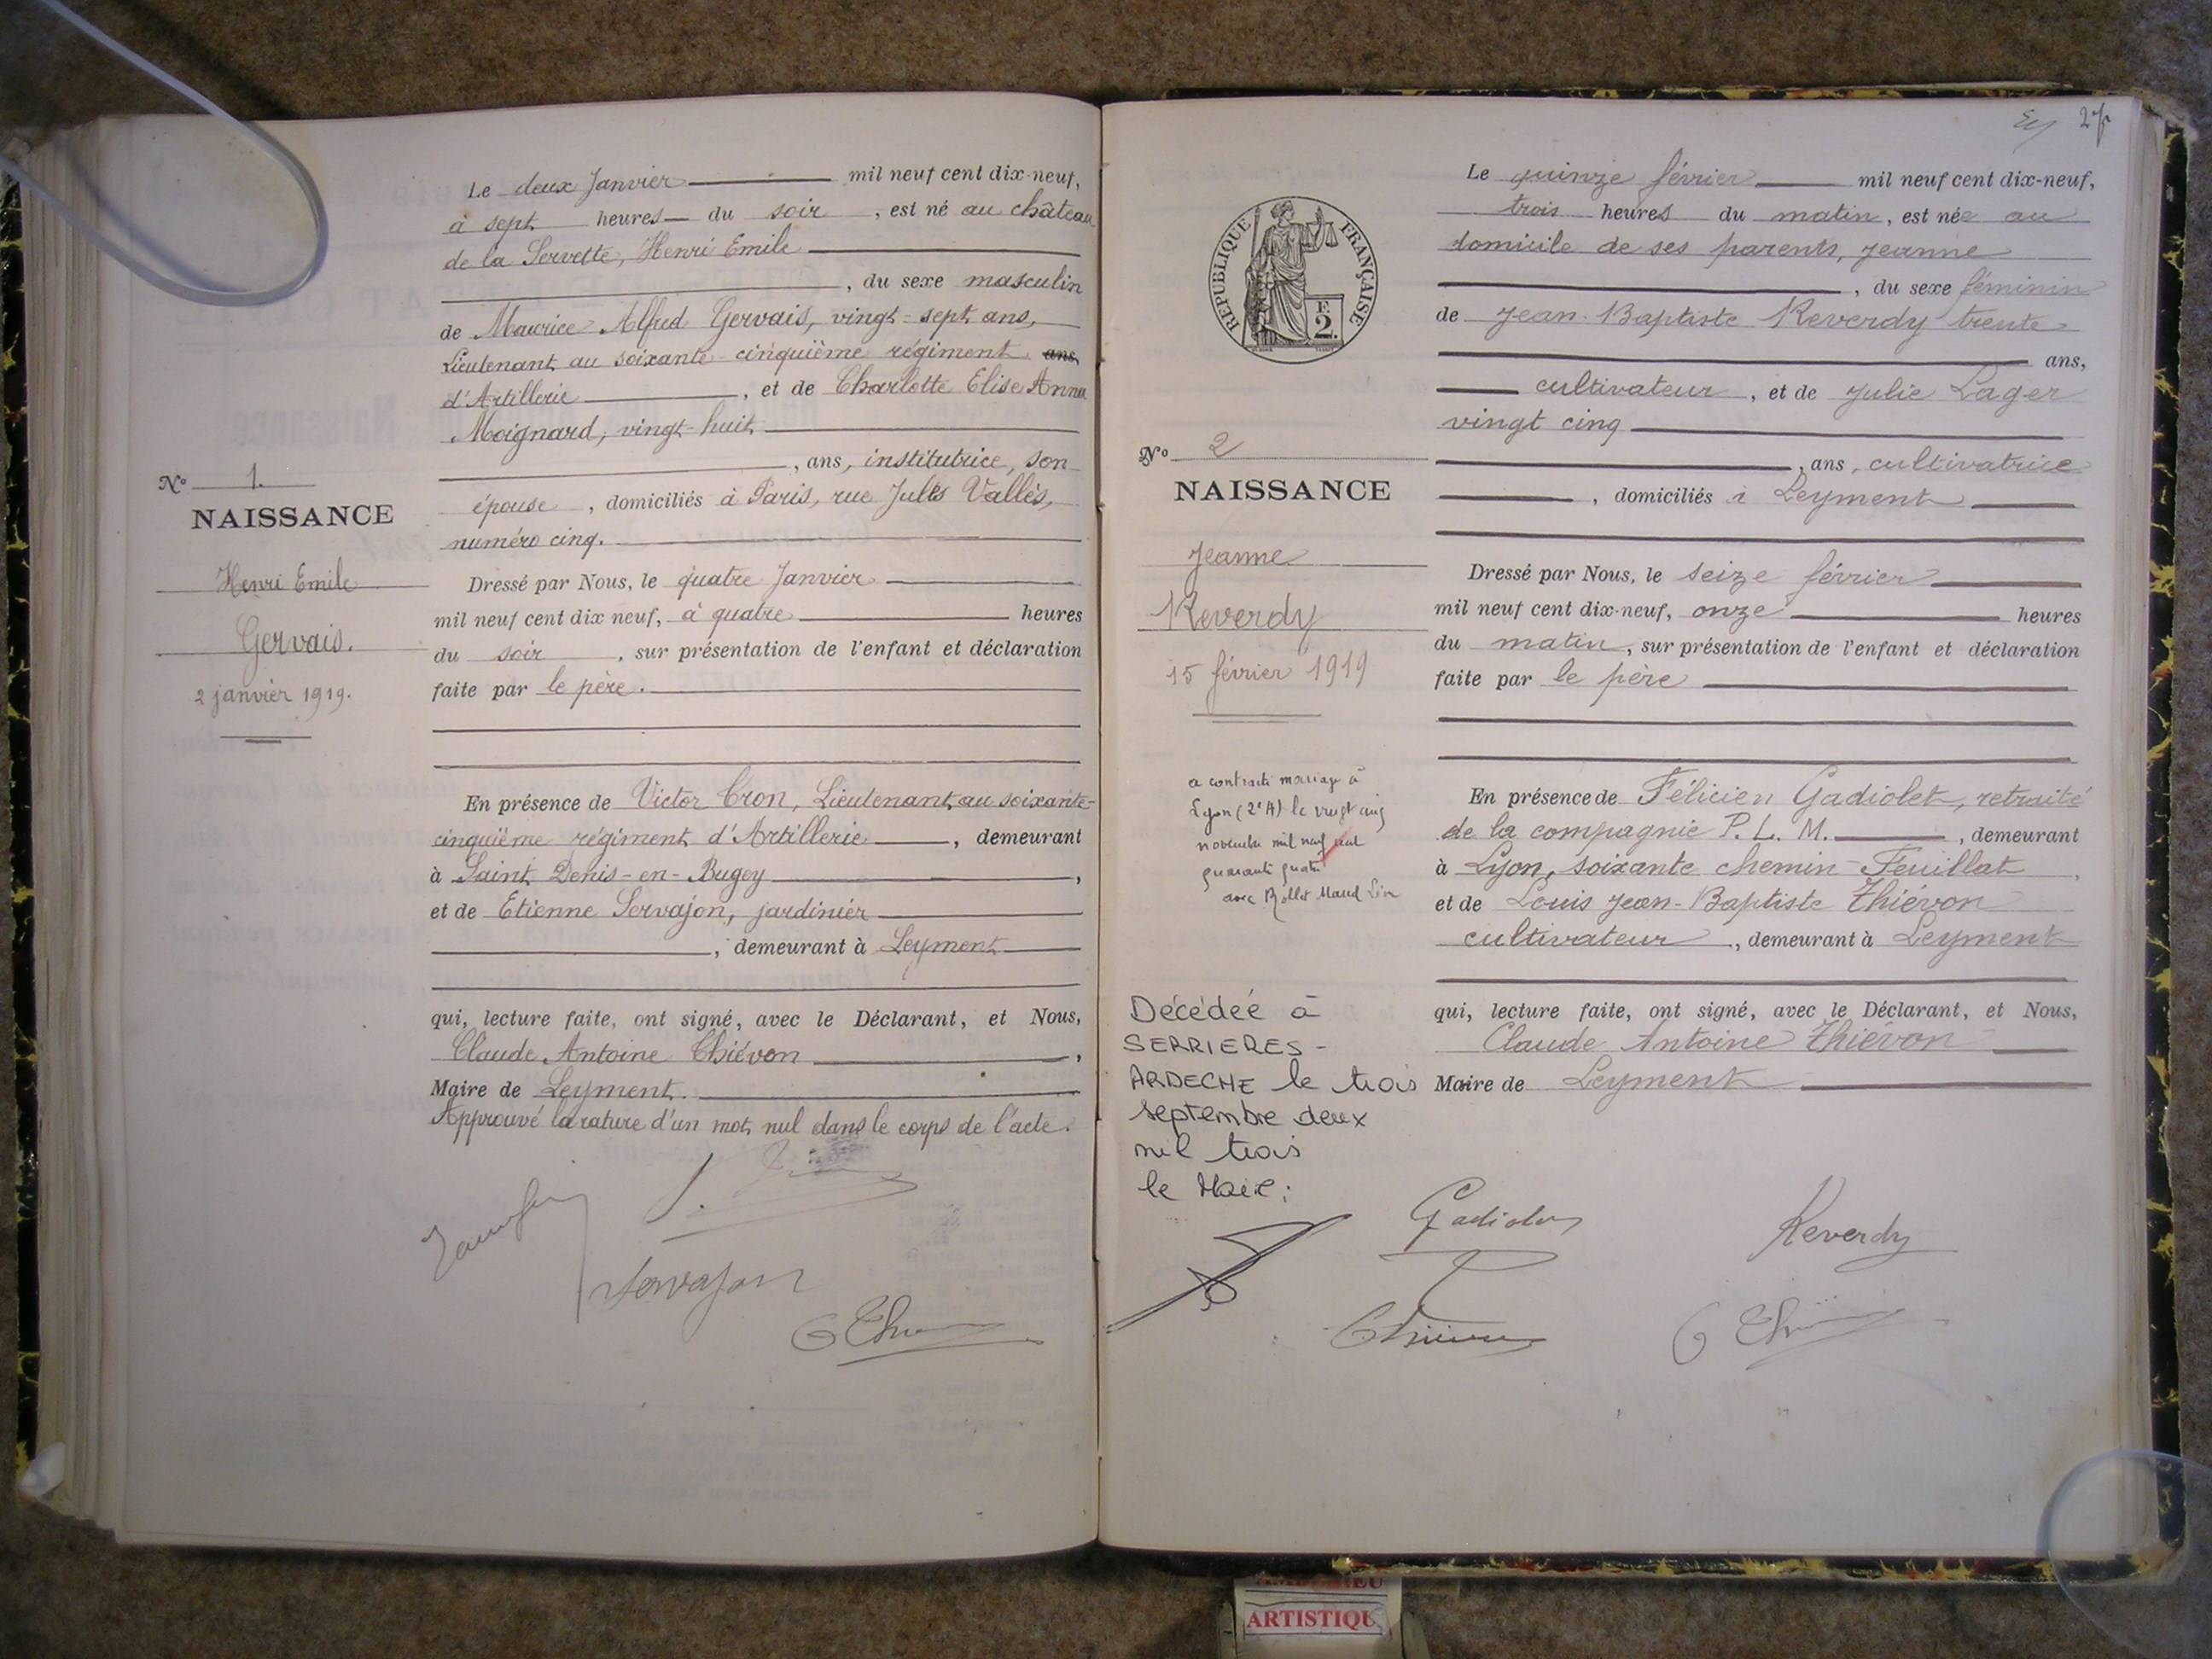 Le deux Janvier mil neuf cent dix-neuf,
à sept heures du soir, est né au château
de la Servette, Henri Emile
, du sexe masculin
de Maurice Alfred Gervais, vingt-sept ans,
Lieutenant au soixante-cinquième régiment ans,
d'Artillerie, et de Charlotte Elise Anna
Moignard, vingt-huit
, ans, institutrice, son
épouse, domiciliés à Paris, rue Jules Vallès,
numéro cinq.
No 1.
NAISSANCE
Henri Emile
Gervais.
2 janvier 1919.
Dressé par Nous, le quatre Janvier
mil neuf cent dix neuf, à quatre heures
du soir, sur présentation de l'enfant et déclaration
faite par le père.
En présence de Victor Cron, Lieutenant au soixante-
cinquième régiment d'Artillerie, demeurant
à Saint Denis-en-Bugey,
et de Etienne Servajon, jardinier
, demeurant à Leyment
qui, lecture faite, ont signé, avec le Déclarant, et Nous,
Claude Antoine Thiévon,
Maire de Leyment.
Approuvé la rature d'un mot nul dans le corps de l'acte.
Servajon
2
RÉPUBLIQUE FRANÇAISE
F.
2.
Le quinze février mil neuf cent dix-neuf,
trois heures du matin, est née au
domicile de ses parents, Jeanne
, du sexe féminin
de Jean-Baptiste Reverdy trente
ans,
cultivateur, et de Julie Lager
vingt cinq
, ans, cultivatrice
, domiciliés à Leyment
No 2
NAISSANCE
Jeanne
Reverdy
15 février 1919
a contracté mariage à
Lyon (2e A) le vingt cinq
novembre mil neuf cent
quarante quatre
avec Rollet
Décédée à
SERRIERES-
ARDECHE le trois
septembre deux
mil trois
le Maire:
Dressé par Nous, le seize février
mil neuf cent dix-neuf, onze heures
du matin, sur présentation de l'enfant et déclaration
faite par le père
En présence de Félicien Gadiolet, retraité
de la compagnie P. L. M., demeurant
à Lyon, soixante chemin Feuillat,
et de Louis Jean-Baptiste Thiévon
cultivateur, demeurant à Leyment
qui, lecture faite, ont signé, avec le Déclarant, et Nous,
Claude Antoine Thiévon
Maire de Leyment
Gadiolet
Reverdy
ARTISTIQU